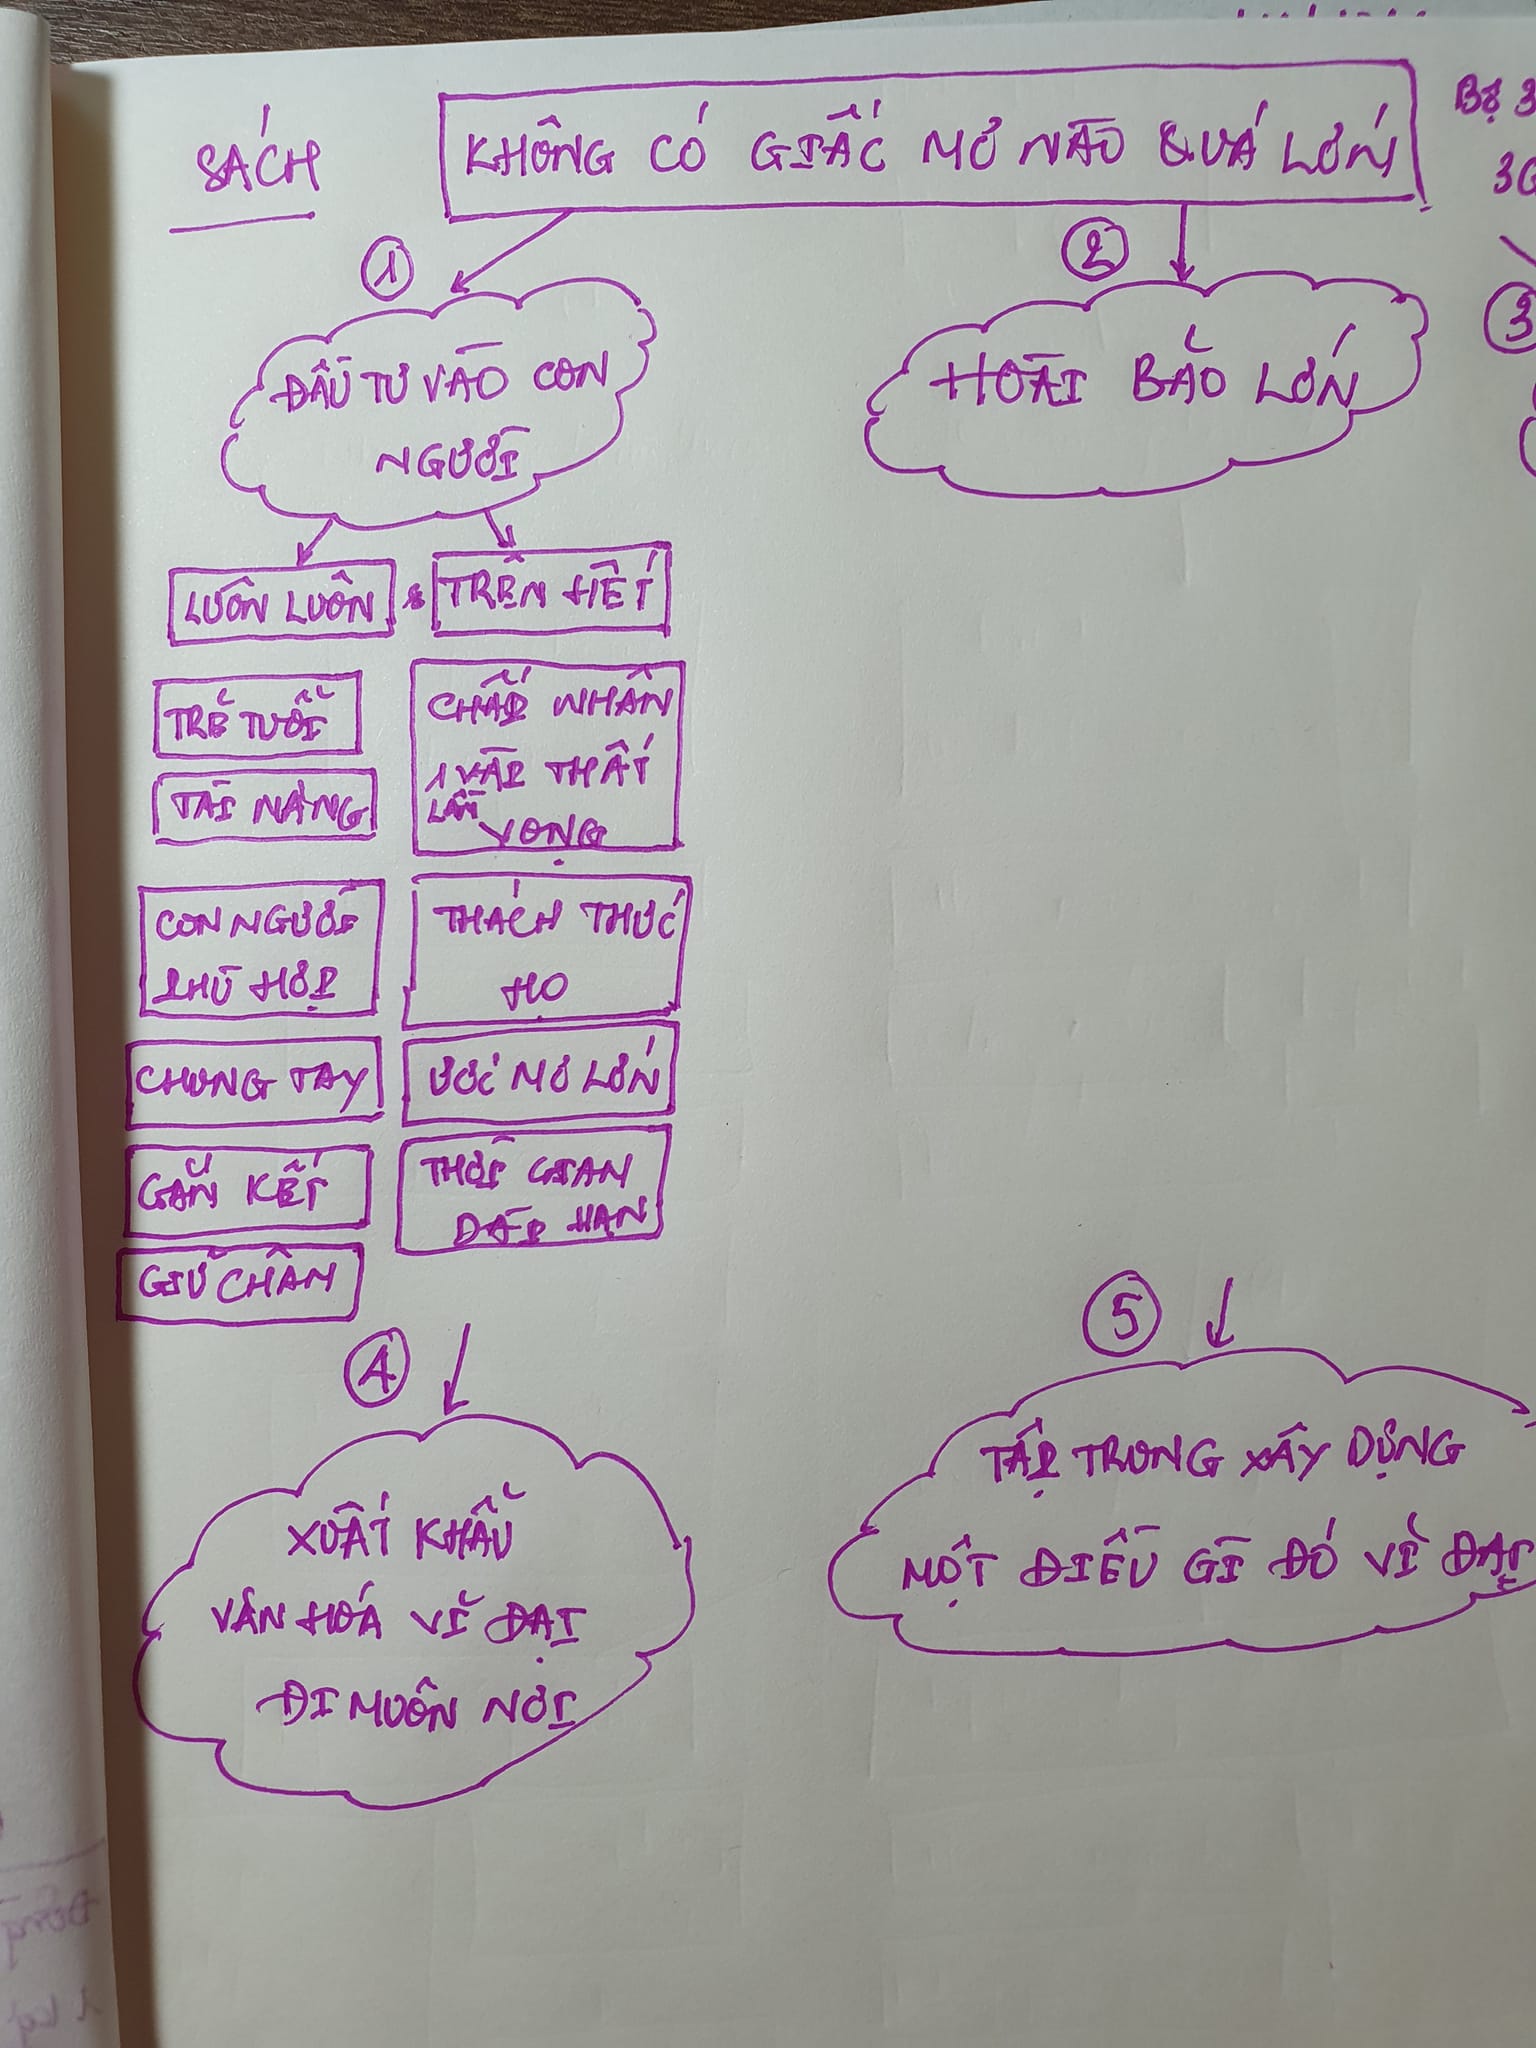 SÁCH
KHÔNG CÓ GIẤC MƠ NÀO QUÁ LỚN
BỘ 3
3G
①
②
③
ĐẦU TƯ VÀO CON
NGƯỜI
HOÀI BÃO LỚN
LUÔN LUÔN & TRÊN HẾT
TRẺ TUỔI
TÀI NĂNG
CON NGƯỜI
PHÙ HỢP
CHUNG TAY
GẮN KẾT
GIỮ CHÂN
CHẤP NHẬN
1 VÀI THẤT
LẦN
VỌNG
THÁCH THỨC
HỌ
ƯỚC MƠ LỚN
THỜI GIAN
DÀI HẠN
④
XUẤT KHẨU
VĂN HOÁ VĨ ĐẠI
ĐI MUÔN NƠI
⑤
TẬP TRUNG XÂY DỰNG
MỘT ĐIỀU GÌ ĐÓ VĨ ĐẠI